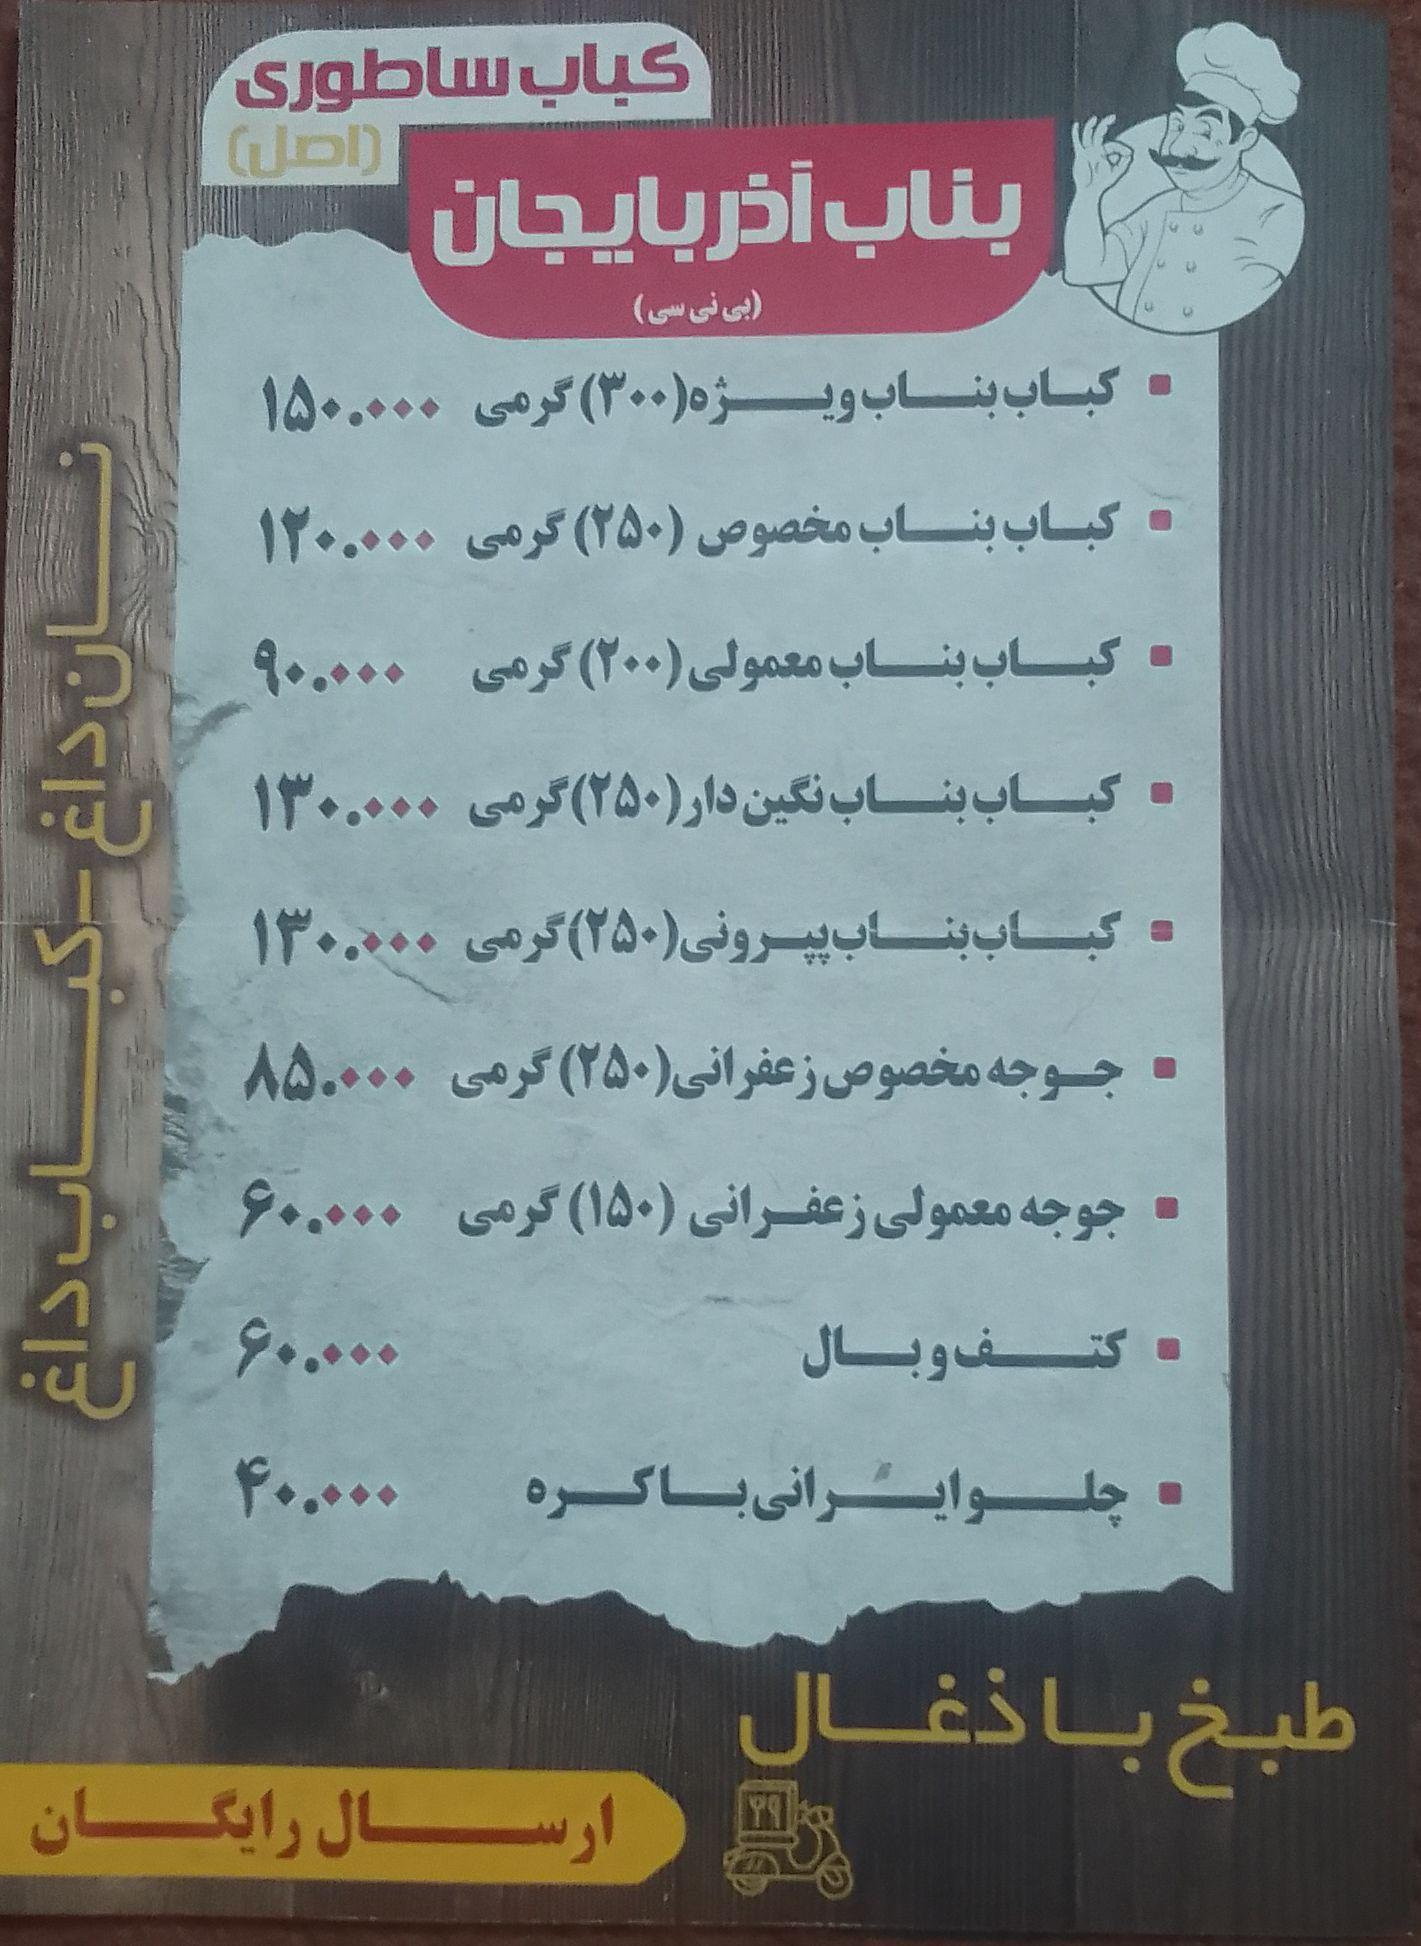 کباب ساطوری
(اصل)
بناب آذربایجان
(بی نی سی)
کباب بناب ویژه (۳۰۰) گرمی ۱۵۰.۰۰۰
کباب بناب مخصوص (۲۵۰) گرمی ۱۲۰.۰۰۰
کباب بناب معمولی (۲۰۰) گرمی ۹۰.۰۰۰
کباب بناب نگین دار (۲۵۰) گرمی ۱۳۰.۰۰۰
کباب بناب پپرونی (۲۵۰) گرمی ۱۳۰.۰۰۰
جوجه مخصوص زعفرانی (۲۵۰) گرمی ۸۵.۰۰۰
جوجه معمولی زعفرانی (۱۵۰) گرمی ۶۰.۰۰۰
کتف و بال ۶۰.۰۰۰
چلو ایرانی با کره ۴۰.۰۰۰
نان داغ - کباب داغ
طبخ با ذغال
۲۹
ارسال رایگان